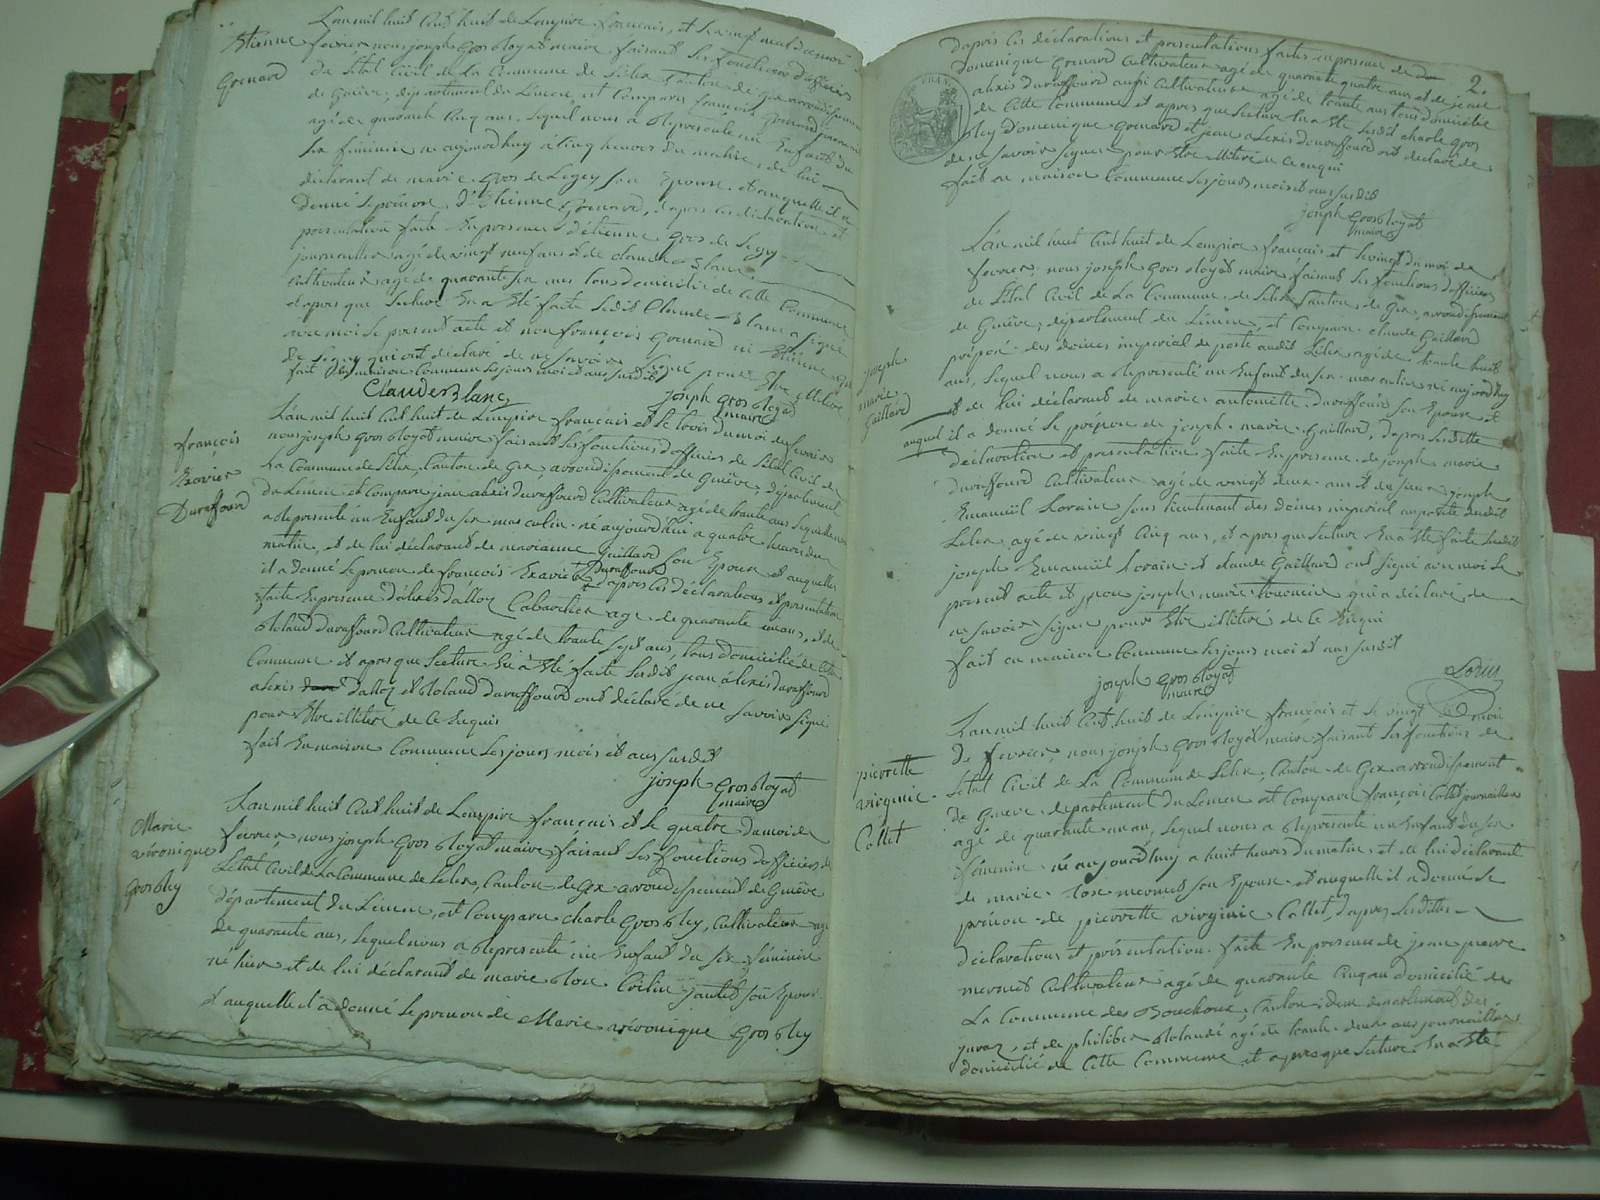 Étienne
Grenard
L'an mil huit cent huit de L'empire français, et le vingt neuf du mois
fevrier nous joseph Grosbloyat maire faisant les fonctions d'officier
de L'état Civil de La Commune de Lélex Canton de Gex arrondissement
de Genève, département du Léman est Comparu françois Grenard
agé de quarante cinq ans, lequel nous a représenté un Enfant du
sex féminin né aujourdhuy à cinq heures du matin, de lui
déclarant de marie Gros de Legey son Epouse, et auquelle il a
donné le prénom d'Étienne Grenard, d'après les déclaration et
présentation faite En présence d'étienne Gros de Legey
journallier agé de vingt neuf ans et de claude Blanc
cultivateur agé de quarante six ans tous domicilié de cette Commune
et après que lecture En a été faite ledit Claude Blanc a signé
avec moi le présent acte et non françois Grenard ni Étienne Gros
de Legey qui ont déclaré de ne savoir signé pour Etre illitéré
fait En maison Commune les jours moi et ans susdit
Claude Blanc
joseph Grosbloyat
maire
françois
Exavier
Duraffourd
L'an mil huit Cent huit de L'empire français et le trois du moi de fevrier
nous joseph Grosbloyat maire faisant les fonctions d'officier de L'état Civil de
La Commune de Lélex, Canton de Gex, arrondissement de Genève, département
du Léman est Comparu jean alexis Duraffourd Cultivateur agé de trante ans lequel nous
a représenté un Enfant du sex masculin né aujourd'hui a quatre heures du
matin, et de lui déclarant de marianne Gaillard son Epouse et auquelle
il a donné le prénom de françois Exavier Duraffourd d'après les déclarations et présentation
faite En présence d'alexis dalloz Cabaretier agé de quarante un ans, et de
Roland duraffourd Cultivateur agé de trante sept ans, tous domicilié de Cette
Commune et après que lecture En a Eté faite lesdit jean alexis duraffourd
alexis dalloz et Roland duraffourd ont déclaré de ne savoir signé
pour Etre illitéré de Ce Enquis
fait En maison Commune les jours mois et ans susdit
joseph Grosbloyat
maire
Marie
véronique
Grosbley
L'an mil huit Cent huit de L'empire français et le quatre du moi de
fevrier nous joseph Grosbloyat maire faisant les fonctions d'officier de
L'état Civil de La Commune de Lélex, Canton de Gex arrondissement de Genève
département du Léman, est Comparu charle Grosbley, Cultivateur agé
de quarante ans, lequel nous a représenté une Enfant du sex féminin
né hier et de lui déclarant de marie Rose son Epouse
Et auquelle il a donné le prénom de Marie véronique Grosbley
2.
d'après les déclarations et présentations faites en présence de
domenique Grenard Cultivateur agé de quarante quatre ans et de jean
alexis duraffourd aussi Cultivateur agé de trante ans tous domicilié
de Cette Commune et après que lecture En a Eté lesdit charle gros
bley domenique Grenard et jean alexis duraffourd ont déclaré de
de ne savoir signer pour Etre illitéré de Ce enqui
fait en maison Commune les jours mois et ans susdit
joseph Grosbloyat
maire
joseph
marie
Gaillard
L'an mil huit Cent huit de L'empire français et le vingt du moi de
fevrier, nous joseph Grosbloyat maire faisant les fonctions d'officier
de L'état Civil de La Commune de Lélex Canton de Gex, arrondissement
de Genève, département du Léman, est Comparu claude Gaillard
préposé des doines imperial de poste audit Lélex agé de trante huit
ans, lequel nous a représenté un Enfant du sex masculin né aujourdhuy
et de lui déclarant de marie antoinette Duraffour son Epouse et
auquel il a donné le prénom de joseph marie Gaillard, d'après lesdittes
déclaration et présentation faite En présence de joseph marie
duraffourd Cultivateur agé de vingt deux ans et de sieur joseph
Emanuiel Lorain sous lieutenant des doines imperial au poste dudit
Lélex agé de vingt Cinq ans, et après que lecture En a Eté faite lesdit
joseph Emanuiel Lorain et claude Gaillard ont signé avec moi le
présent acte et non joseph marie qui a déclaré de
ne savoir signer pour Etre illitéré de Ce Enqui
fait en maison Commune les jours moi et ans susdit
joseph Grosbloyat
maire
pierrette
virginie
Collet
L'an mil huit Cent huit de L'empire français et le vingt du moi
de fevrier, nous joseph Grosbloyat maire faisant les fonctions de
L'état Civil de La Commune de Lélex, Canton de Gex arrondissement
de Geneve, departement du Leman est Comparu françois Collet journaillier
agé de quarante un an, lequel nous a représenté un Enfant du sex
féminin né aujourdhuy a huit heures du matin et de lui déclarant
de marie Rose mermet son Epouse et auquelle il a donné le
prénom de pierrette virginie Collet, d'après lesdittes
déclarations et présentation faite En présence de jean pierre
mermet Cultivateur agé de quarante Cinq an domicilié de
La Commune des Bouchoux, Canton idem departement du
jura, et de philiber Rolandé agé de trante deux ans journaillier
domicilié de Cette Commune et après que lecture En a Eté